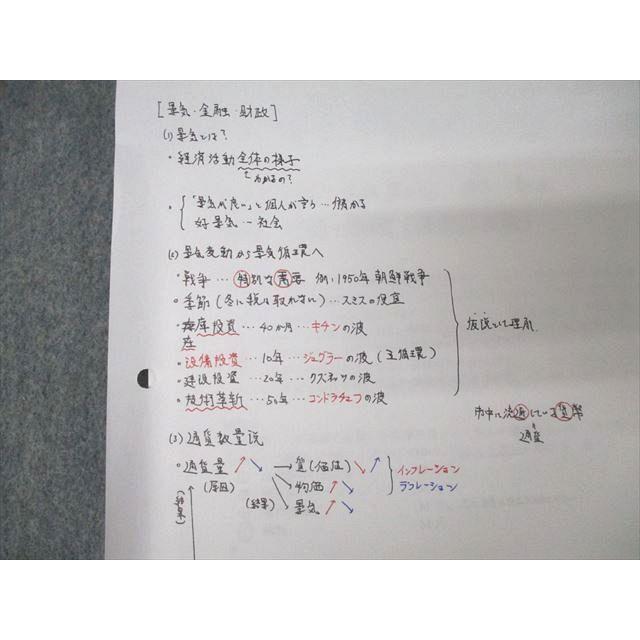 [景気・金融・財政]
(1) 景気とは?
・経済活動全体の様子
わかるの?
・「景気が良い」と個人が言う…儲かる
好景気…社会
(2) 景気変動から景気循環へ
・戦争…特別な需要 例:1950年朝鮮戦争
・季節(冬に桃は取れない)…スミスの
・在庫投資…40か月…キチンの波
・設備投資…10年…ジュグラーの波(主循環)
・建設投資…20年…クズネッツの波
・技術革新…50年…コンドラチェフの波
仮説として理解
市中に流通している貨幣
通貨
(3) 通貨数量説
・通貨量↗↘→質(価値)↘↗
(原因)
物価↗↘
(結果)景気↗↘
インフレーション
デフレーション